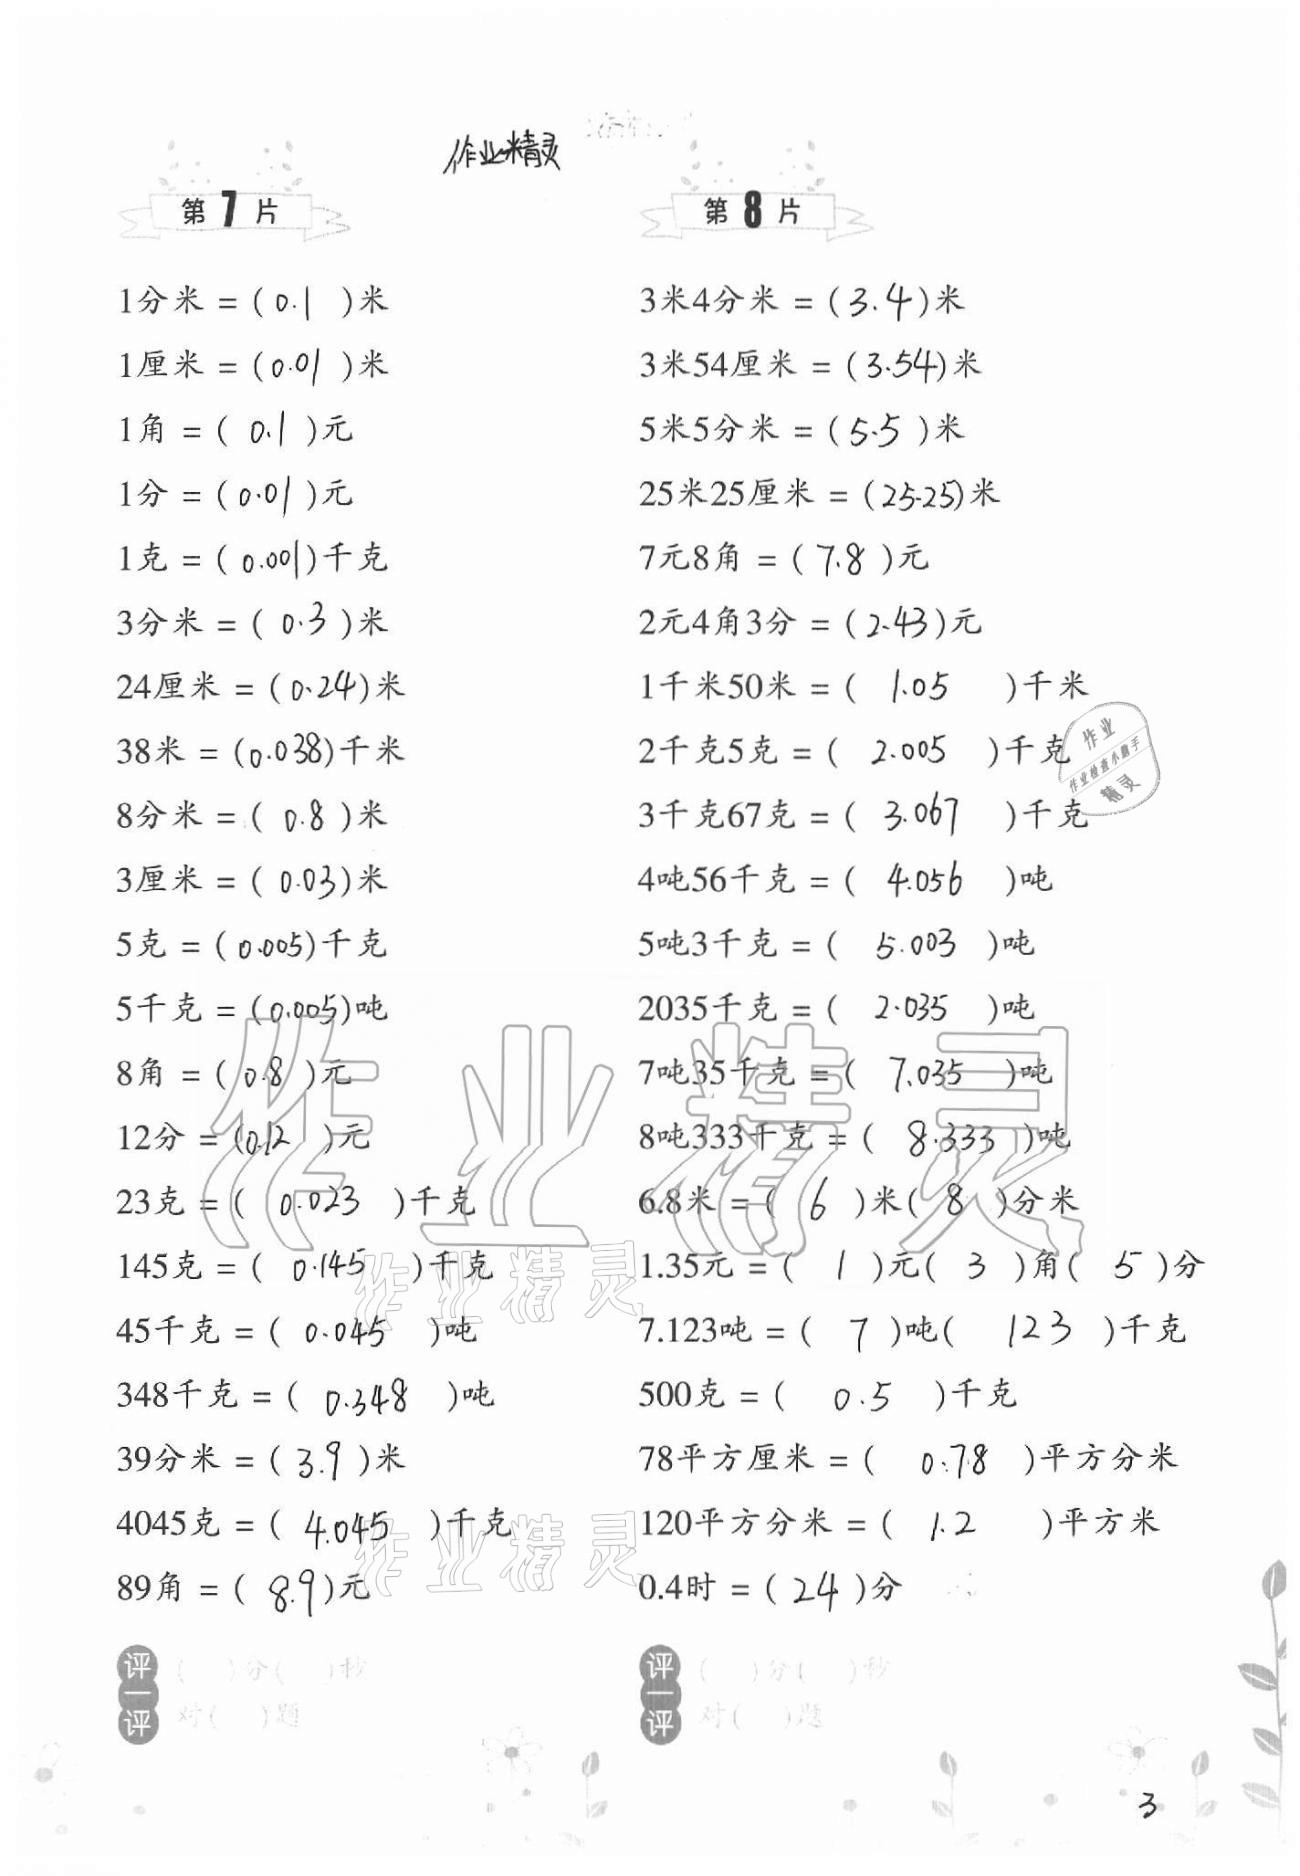 作业精灵
第7片
1分米 = ( 0.1 )米
1厘米 = ( 0.01 )米
1角 = ( 0.1 )元
1分 = ( 0.01 )元
1克 = ( 0.001 )千克
3分米 = ( 0.3 )米
24厘米 = ( 0.24 )米
38米 = ( 0.038 )千米
8分米 = ( 0.8 )米
3厘米 = ( 0.03 )米
5克 = ( 0.005 )千克
5千克 = ( 0.005 )吨
8角 = ( 0.8 )元
12分 = ( 0.12 )元
23克 = ( 0.023 )千克
145克 = ( 0.145 )千克
45千克 = ( 0.045 )吨
348千克 = ( 0.348 )吨
39分米 = ( 3.9 )米
4045克 = ( 4.045 )千克
89角 = ( 8.9 )元
评一评
( )分( )秒
对( )题
第8片
3米4分米 = ( 3.4 )米
3米54厘米 = ( 3.54 )米
5米5分米 = ( 5.5 )米
25米25厘米 = ( 25.25 )米
7元8角 = ( 7.8 )元
2元4角3分 = ( 2.43 )元
1千米50米 = ( 1.05 )千米
2千克5克 = ( 2.005 )千克
3千克67克 = ( 3.067 )千克
4吨56千克 = ( 4.056 )吨
5吨3千克 = ( 5.003 )吨
2035千克 = ( 2.035 )吨
7吨35千克 = ( 7.035 )吨
8吨333千克 = ( 8.333 )吨
6.8米 = ( 6 )米( 8 )分米
1.35元 = ( 1 )元( 3 )角( 5 )分
7.123吨 = ( 7 )吨( 123 )千克
500克 = ( 0.5 )千克
78平方厘米 = ( 0.78 )平方分米
120平方分米 = ( 1.2 )平方米
0.4时 = ( 24 )分
评一评
( )分( )秒
对( )题
作业
作业检查小助手
精灵
作业精灵
作业精灵
作业精灵
3